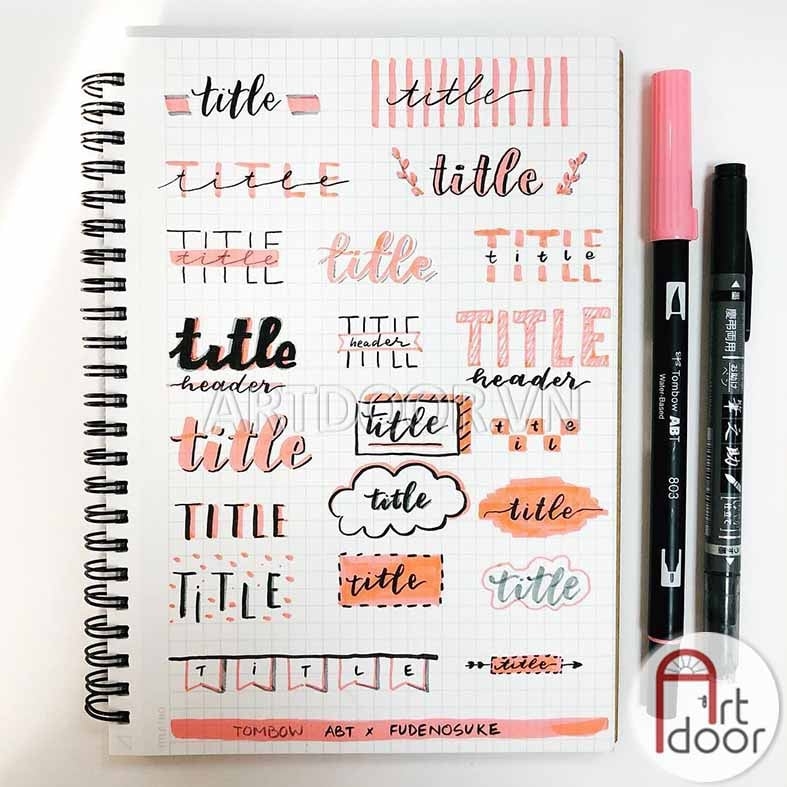 title title
TITLE title title
TITLE title title TITLE title
title header TITLE header TITLE header
ARTDOOR.VN
title title title
TITLE title title
TITLE title title
TITLE title
TOMBOW ABT x FUDENOSUKE
Tombow ABT
Water-Based
803
慶弔両用
筆之助
Art
door